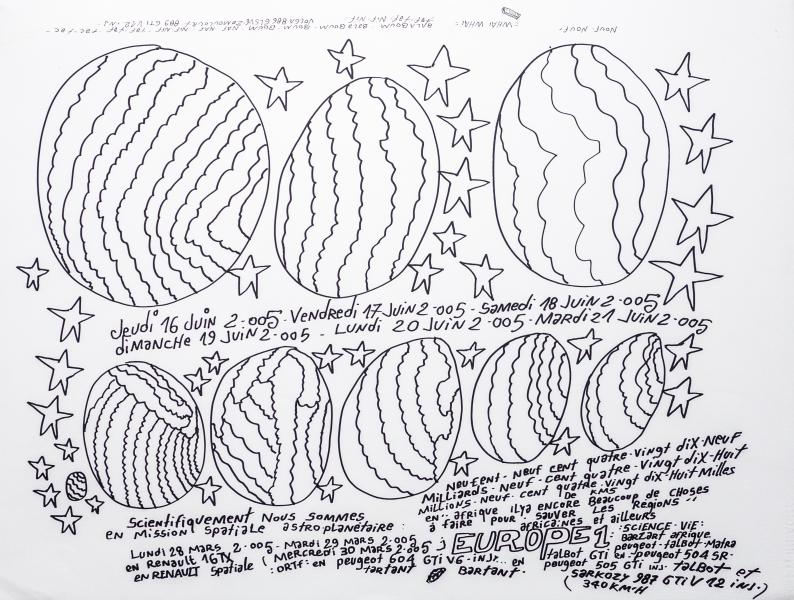 Jeudi 16 Juin 2-005 - Vendredi 17 Juin 2-005 - Samedi 18 Juin 2-005
dimanche 19 Juin 2-005 - Lundi 20 Juin 2-005 - Mardi 21 Juin 2-005
Neuf cent quatre-vingt dix-Neuf
Milliards-Neuf-cent quatre-vingt dix-Huit
Millions-Neuf-cent quatre vingt dix-Huit Milles
De KMS
en afrique il y a encore Beaucoup de choses
à faire pour sauver Les Regions
africaines et ailleurs
Scientifiquement Nous sommes
en Mission spatiale astroplanétaire :
Lundi 28 Mars 2-005 - Mardi 29 mars 2-005
en Renault 16TX ( Mercredi 30 Mars 2-005
en RENAULT Spatiale : ORTF - en peugeot 604 GTi V6 - inj. - en
tartant Bartant.
EUROPE 1
: SCIENCE-VIE :
Barzart afrique
peugeot-talBot-Matra
talBot GTi en peugeot 504 SR-
peugeot 505 GTi inj. talBot et
(Sarkozy 987 GTi V 12 inj.)
(340 KM-H